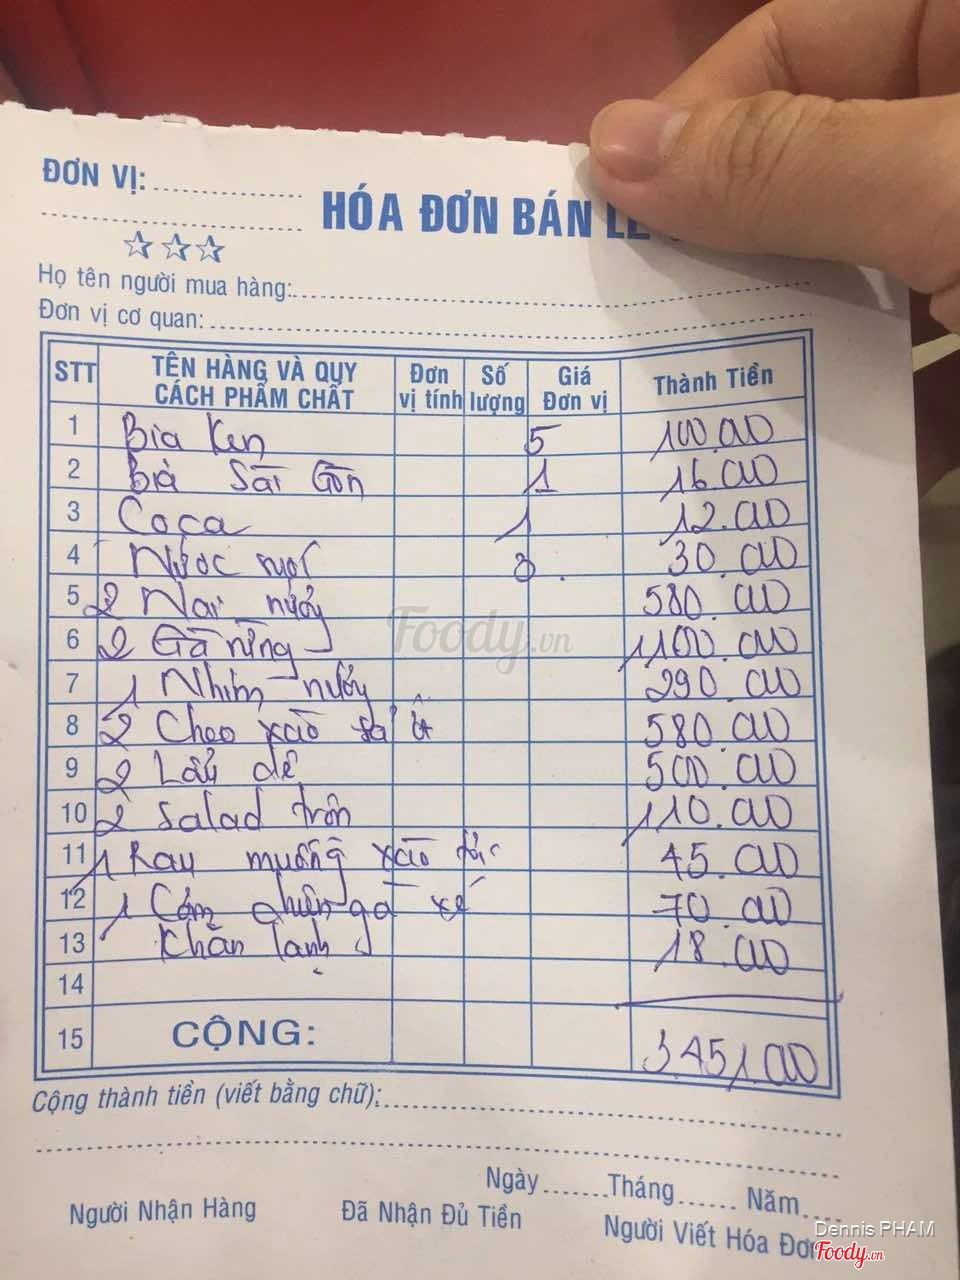 ĐƠN VỊ:
HÓA ĐƠN BÁN LẺ
Họ tên người mua hàng:
Đơn vị cơ quan:
STT TÊN HÀNG VÀ QUY CÁCH PHẨM CHẤT Đơn vị tính Số lượng Giá Đơn vị Thành Tiền
1 Bia Ken 5 100.000
2 Bia Sài Gòn 1 16.000
3 Coca 1 12.000
4 Nước suối 3 30.000
5 2 Nai nướng 580.000
6 2 Gà nướng 1100.000
7 1 Nhím nướng 290.000
8 2 Cheo xào sả ớt 580.000
9 2 Lẩu dê 500.000
10 2 Salad trộn 110.000
11 1 Rau muống xào tỏi 45.000
12 1 Cơm chiên gà xé 70.000
13 Khăn lạnh 18.000
14
15 CỘNG: 3.451.000
Cộng thành tiền (viết bằng chữ):
Ngày Tháng Năm
Người Nhận Hàng Đã Nhận Đủ Tiền Người Viết Hóa Đơn
Foody.vn
Dennis PHAM
Foody.vn